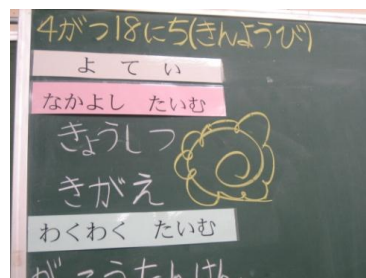 4がつ18にち(きんようび)
よてい
なかよし たいむ
きょうしつ
きがえ
わくわく たいむ
がっこうたんけん